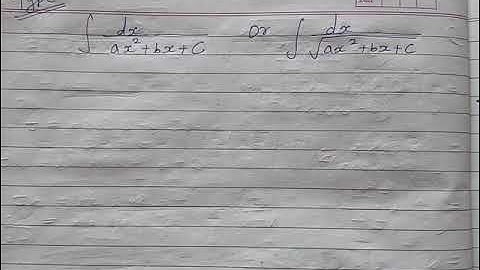 Type
∫ dx / ax² + bx + C or ∫ dx / √ax² + bx + C